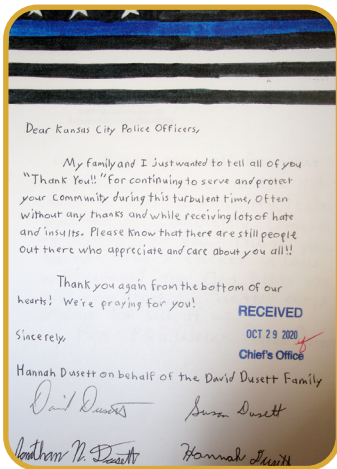 Dear Kansas City Police Officers,
My family and I just wanted to tell all of you
"Thank You!!" for continuing to serve and protect
your community during this turbulent time, Often
without any thanks and while receiving lots of hate
and insults. Please know that there are still people
out there who appreciate and care about you all!!
Thank you again from the bottom of our
hearts! We're praying for you!
RECEIVED
OCT 29 2020
Chief's Office
Sincerely,
Hannah Dusett on behalf of the David Dusett Family
David Dusett
Susan Dusett
Jonathan N. Dusett
Hannah Dusett